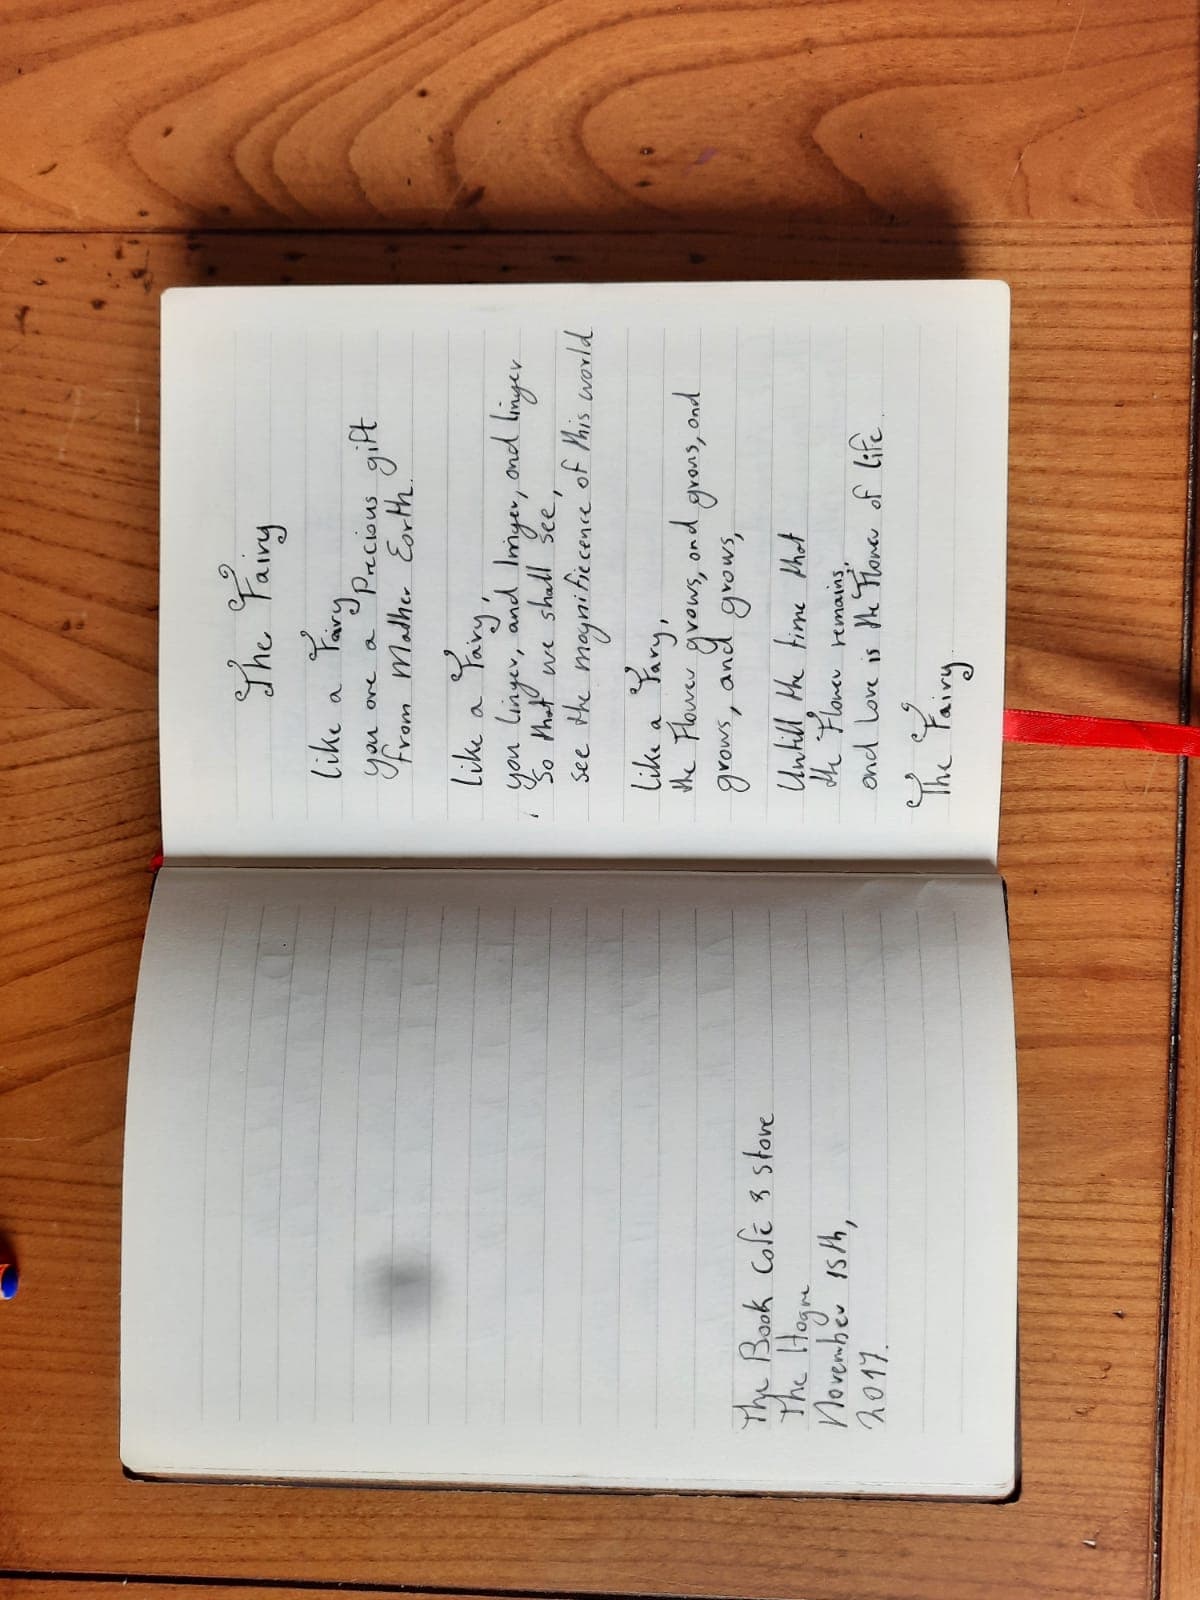 The Book Café & Store
The Hague
November 15th,
2017.
The Fairy
Like a Fairy
you are a Precious gift
from Mother Earth.
Like a Fairy,
you linger, and linger, and linger
, So that we shall see,
see the magnificence of this world
Like a Fairy,
the Flower grows, and grows, and
grows, and grows,
Untill the time that
the Flower remains,
and Love is the Flower of Life.
The Fairy